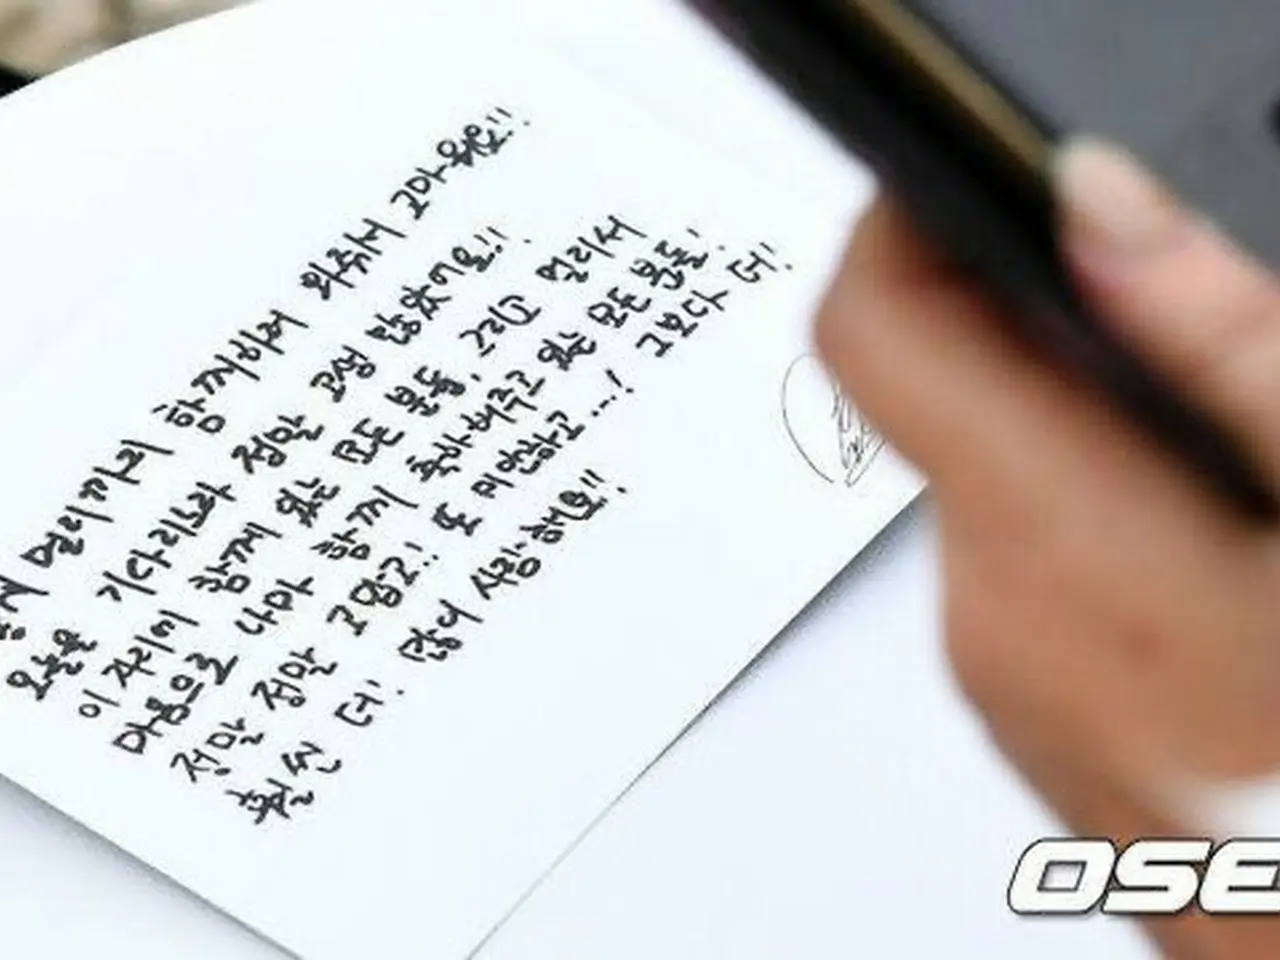 멀리까지 함께해 와줘서 고마워요!!
오늘을 기다리느라 정말 고생 많았어요!!
이 자리에 함께 있는 모든 분들, 그리고 멀리서
마음으로 나마 함께 축하해주고 있는 모든 분들!
정말 정말 고맙고!! 또 미안하고...! 그보다 더!
훨씬 더! 많이 사랑해요!!
OSE